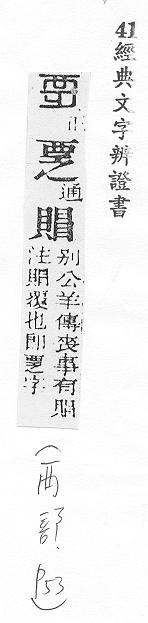 41經典文字辨證書
正
覂通
賵別公羊傳喪事有賵
注賵覆也即覂字
(襾部. P53)